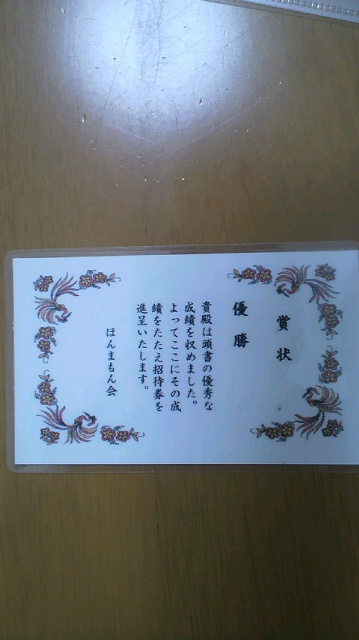 賞状
優勝
貴殿は頭書の優秀な
成績を収めました。
よってここにその成
績をたたえ招待券を
進呈いたします。
ほんまもん会